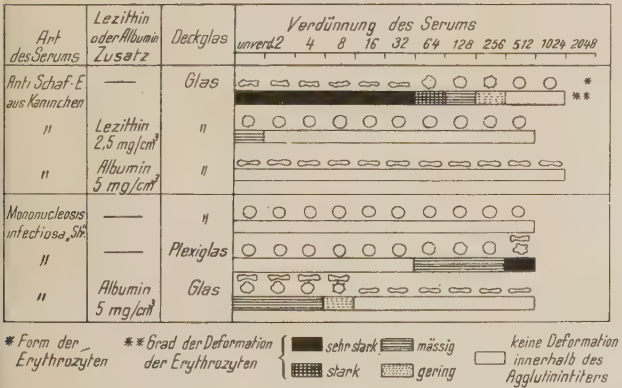 Art des Serums
Lezithin oder Albumin Zusatz
Deckglas
Verdünnung des Serums
unverd. 2 4 8 16 32 64 128 256 512 1024 2048
Anti Schaf-E aus Kaninchen — Glas *
**
" Lezithin 2,5 mg/cm³ "
" Albumin 5 mg/cm³ "
Mononucleosis infectiosa „Str." — "
" — Plexiglas
" Albumin 5 mg/cm³ Glas
* Form der Erythrozyten
** Grad der Deformation der Erythrozyten
sehr stark
stark
mässig
gering
keine Deformation innerhalb des Agglutinintiters